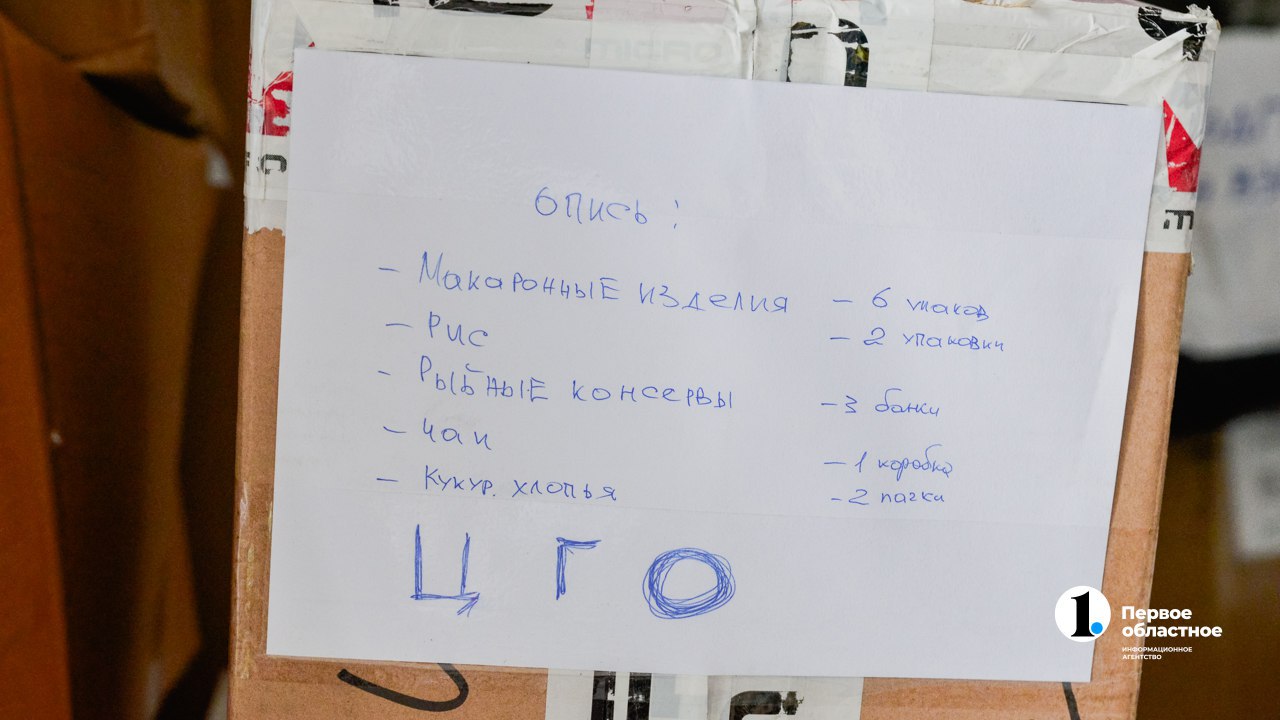 Опись:
- Макаронные изделия - 6 упаков
- Рис - 2 упаковки
- Рыбные консервы - 3 банки
- Чаи - 1 коробка
- Кукур. хлопья - 2 пачки
ЦГО
1.
Первое
областное
ИНФОРМАЦИОННОЕ
АГЕНТСТВО